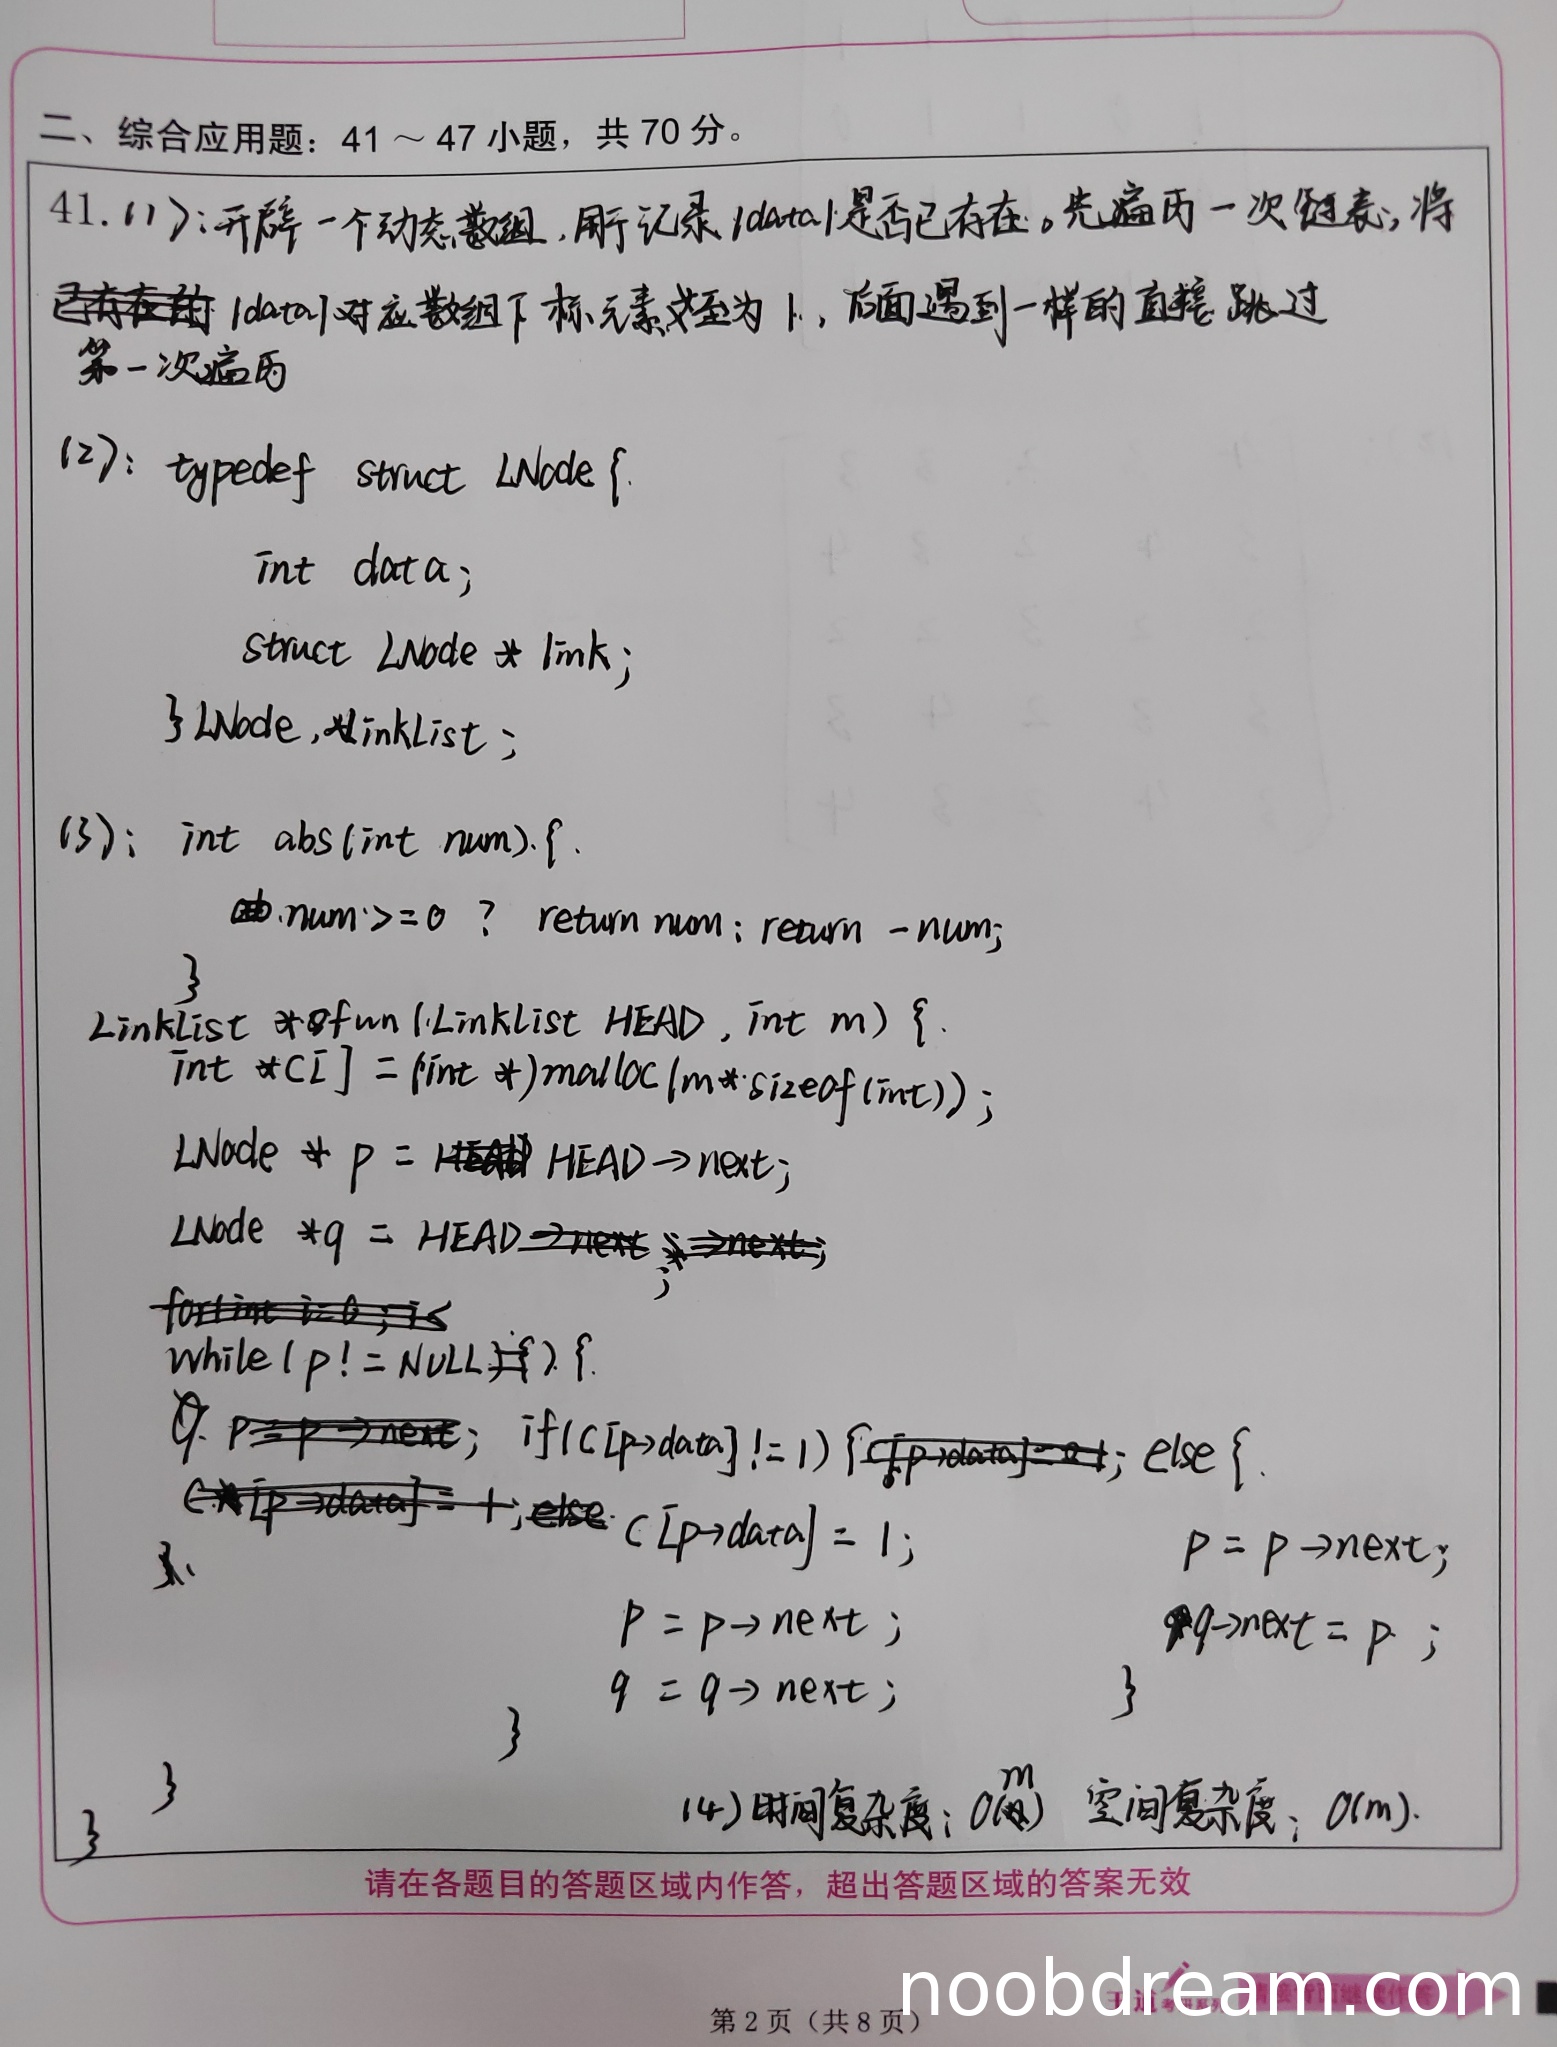 二、综合应用题：41～47 小题，共 70 分。
41.(1)：开辟一个动态数组，用于记录|data|是否已存在。先遍历一次链表，将
|data|对应数组下标元素设置为1，后面遇到一样的直接跳过
第一次遍历
(2)： typedef struct LNode{
int data;
struct LNode * link;
}LNode,*LinkList;
(3)： int abs(int num){
num>=0 ? return num: return -num;
}
LinkList * fun(LinkList HEAD, int m) {
int *C[] = (int *)malloc(m*sizeof(int));
LNode * p = HEAD→next;
LNode *q = HEAD;
while(p!=NULL){
if(C[p→data]!=1){ else{
C[p→data] = 1; p = p→next;
p = p→next; q→next = p ;
q = q→next; }
}
}
(4)时间复杂度：O(m) 空间复杂度：O(m).
}
请在各题目的答题区域内作答，超出答题区域的答案无效
noobdream.com
第 2 页（共 8 页）